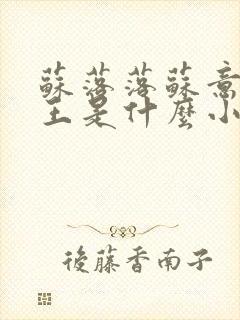 蘇落落蘇意
王是什麼小
後藤香南子